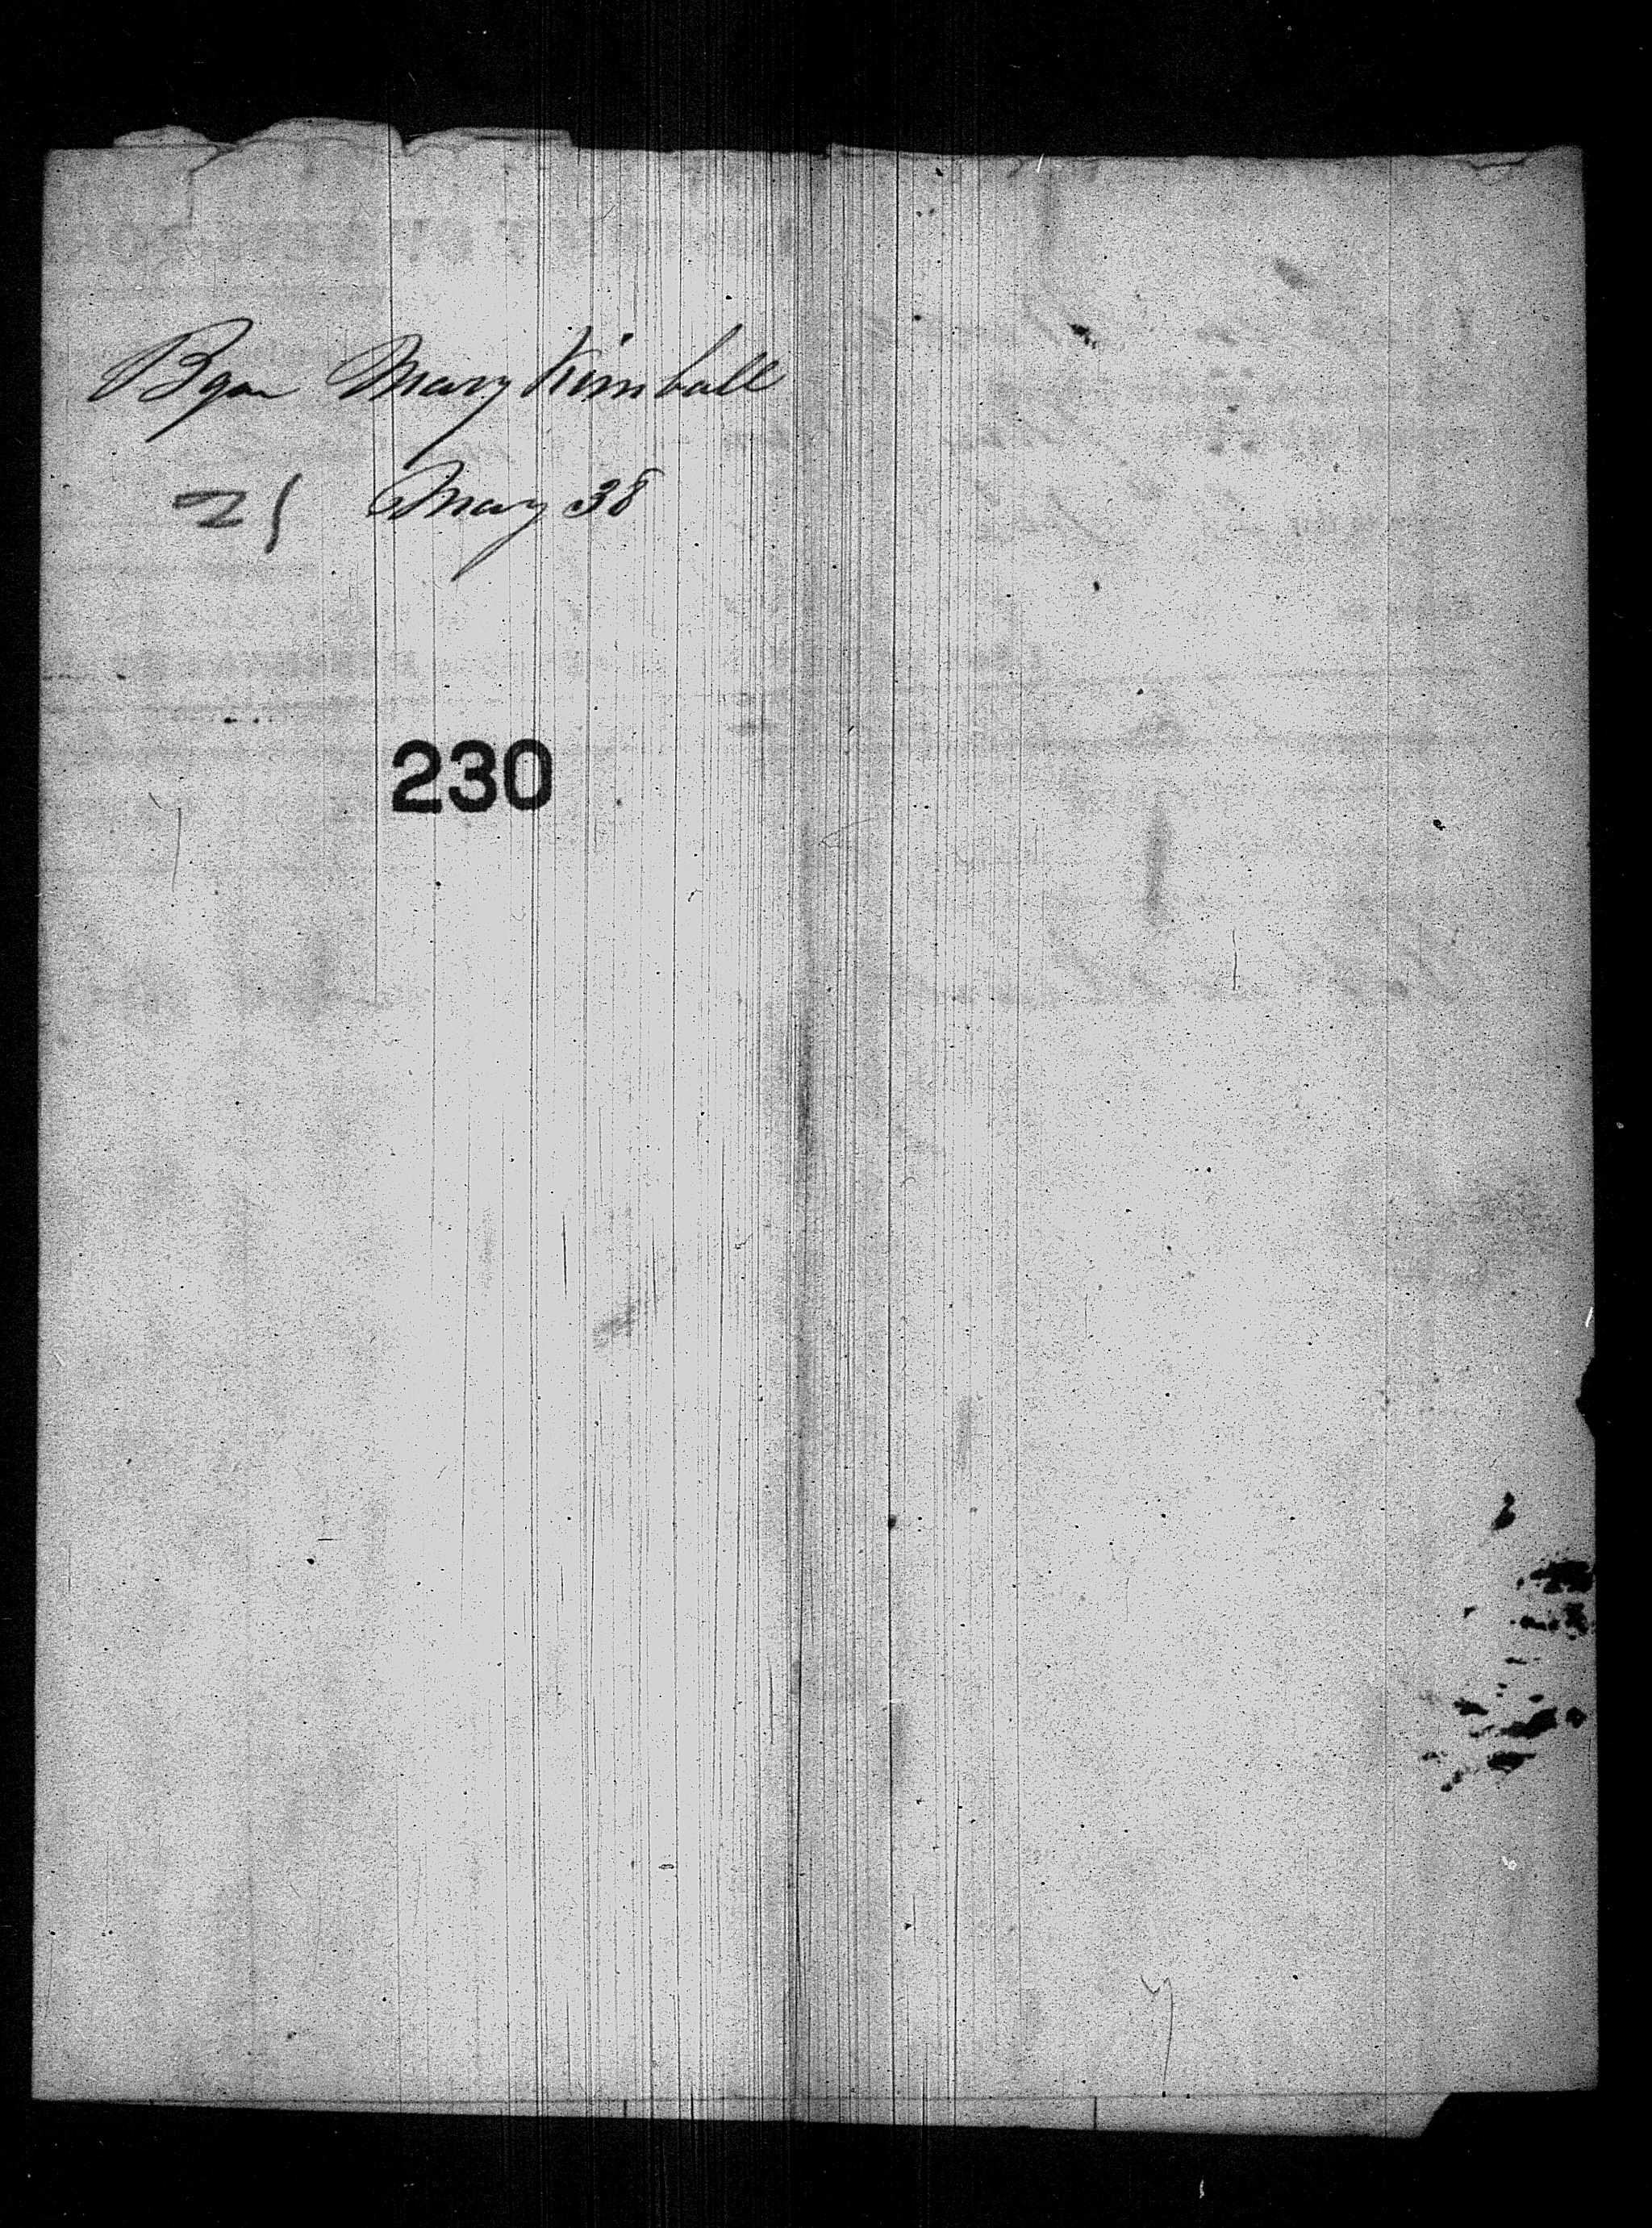 Byan Mary Kimball
21 May 38
230